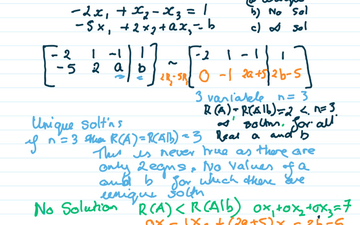 -2x₁ + x₂ - x₃ = 1
b) No Sol
-5x₁ + 2x₂ + ax₃ = b
c) ∞ sol
[-2 1 -1 | 1
-5 2 a | b] ~ [-2 1 -1 | 1
0 -1 2a+5 | 2b-5]
2R₂-5R₁
3 variable n=3
R(A) = R(A|b) = 2 < n=3
∞ soltns. for all
Real a and b
Unique soltns
if n=3 then R(A)=R(A|b)=3
This is never true as there are
only 2 eqns. No values of a
and b for which there are
unique soltn
No Solution R(A) < R(A|b) 0x₁+0x₂+0x₃=7